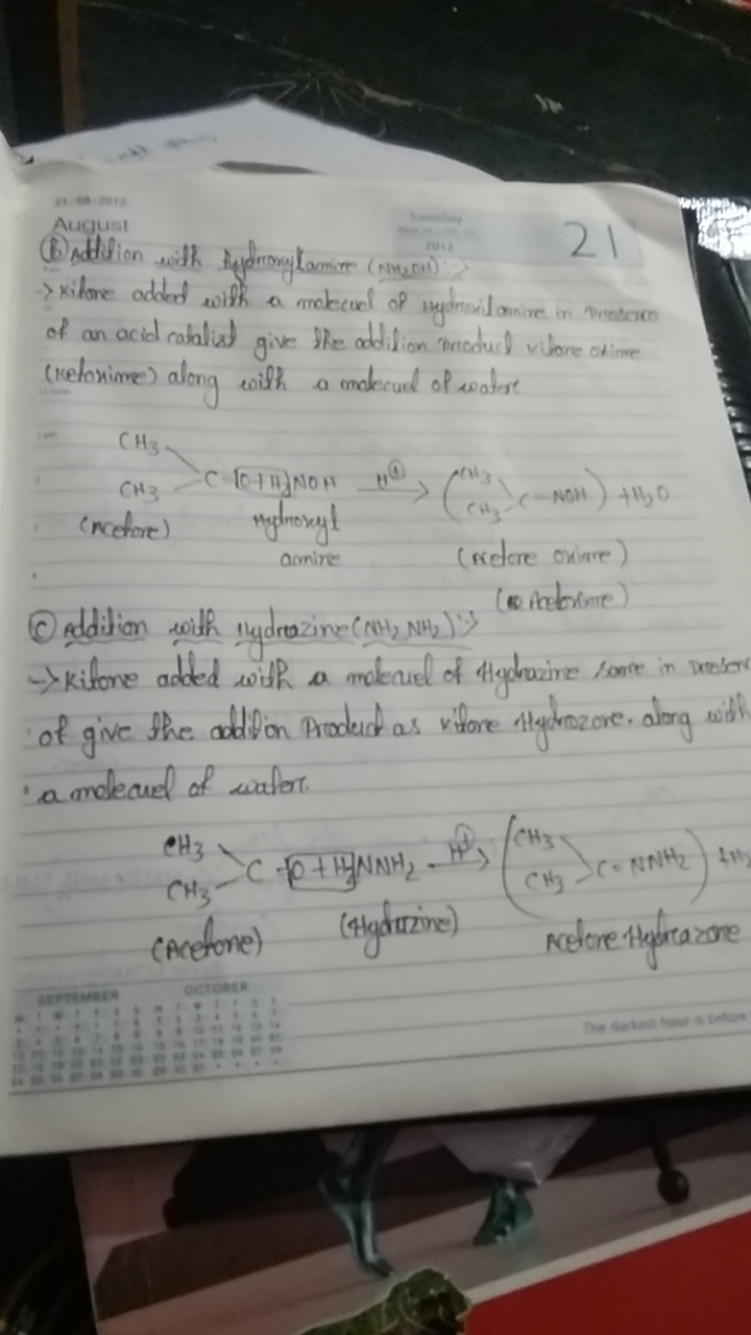 21-08-2012
August
Tuesday
2012
21
(b) Addition with Hydroxylamine (NH2OH) :->
-> Kitone added with a molecuel of Hydroxilamine in Presence
of an acid catalist give the addition Product kitone oxime
(Ketoxime) along with a molecuel of water
CH3
CH3
C=[O+H2]NOH H⊕ →
(CH3
CH3 C=NOH) +H2O
(Acetone)
Hydroxyl
amine
(Acetone oxime)
(Acetoxime)
(c) Addition with Hydrazine (NH2 NH2) :->
-> Kitone added with a molecuel of Hydrazine in Presen
of give the addition Product as kitone Hydrozone. along with
a molecuel of water.
CH3
CH3
C=[O+H2]NNH2 H⊕ →
(CH3
CH3 C=NNH2) +H2
(Acetone)
(Hydrazine)
Acetone Hydrazone
SEPTEMBER
OCTOBER
The darkest hour is before